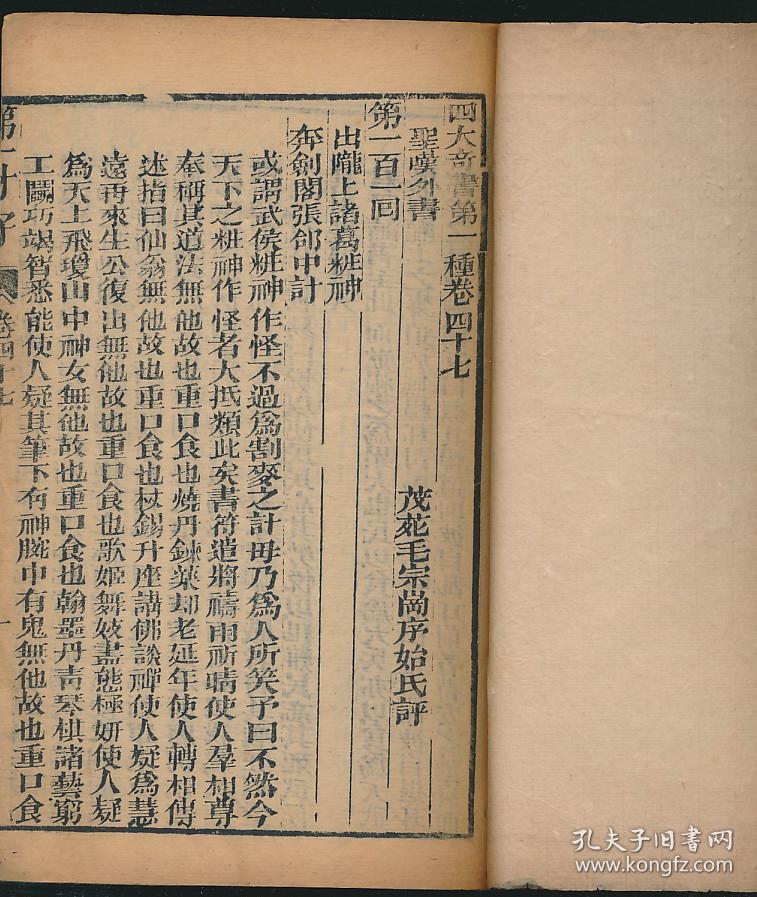 四大奇書第一種卷四十七
聖嘆外書
茂苑毛宗崗序始氏評
第一百一回
出隴上諸葛粧神
奔劍閣張郃中計
或謂武侯粧神作怪不過爲割麥之計毋乃爲人所笑予曰不然今
天下之粧神作怪者大抵類此矣書符遣將禱雨祈晴使人羣相尊
奉稱其道法無他故也重口食也燒丹鍊藥却老延年使人轉相傳
述指曰仙翁無他故也重口食也杖錫升座講佛談禪使人疑爲慧
遠再來生公復出無他故也重口食也歌姬舞妓盡態極妍使人疑
爲天上飛瓊山中神女無他故也重口食也翰墨丹靑琴棋諸藝窮
工鬭巧竭智悉能使人疑其筆下有神腕中有鬼無他故也重口食
第一才子
卷四十七
一
孔夫子旧书网
www.kongfz.com